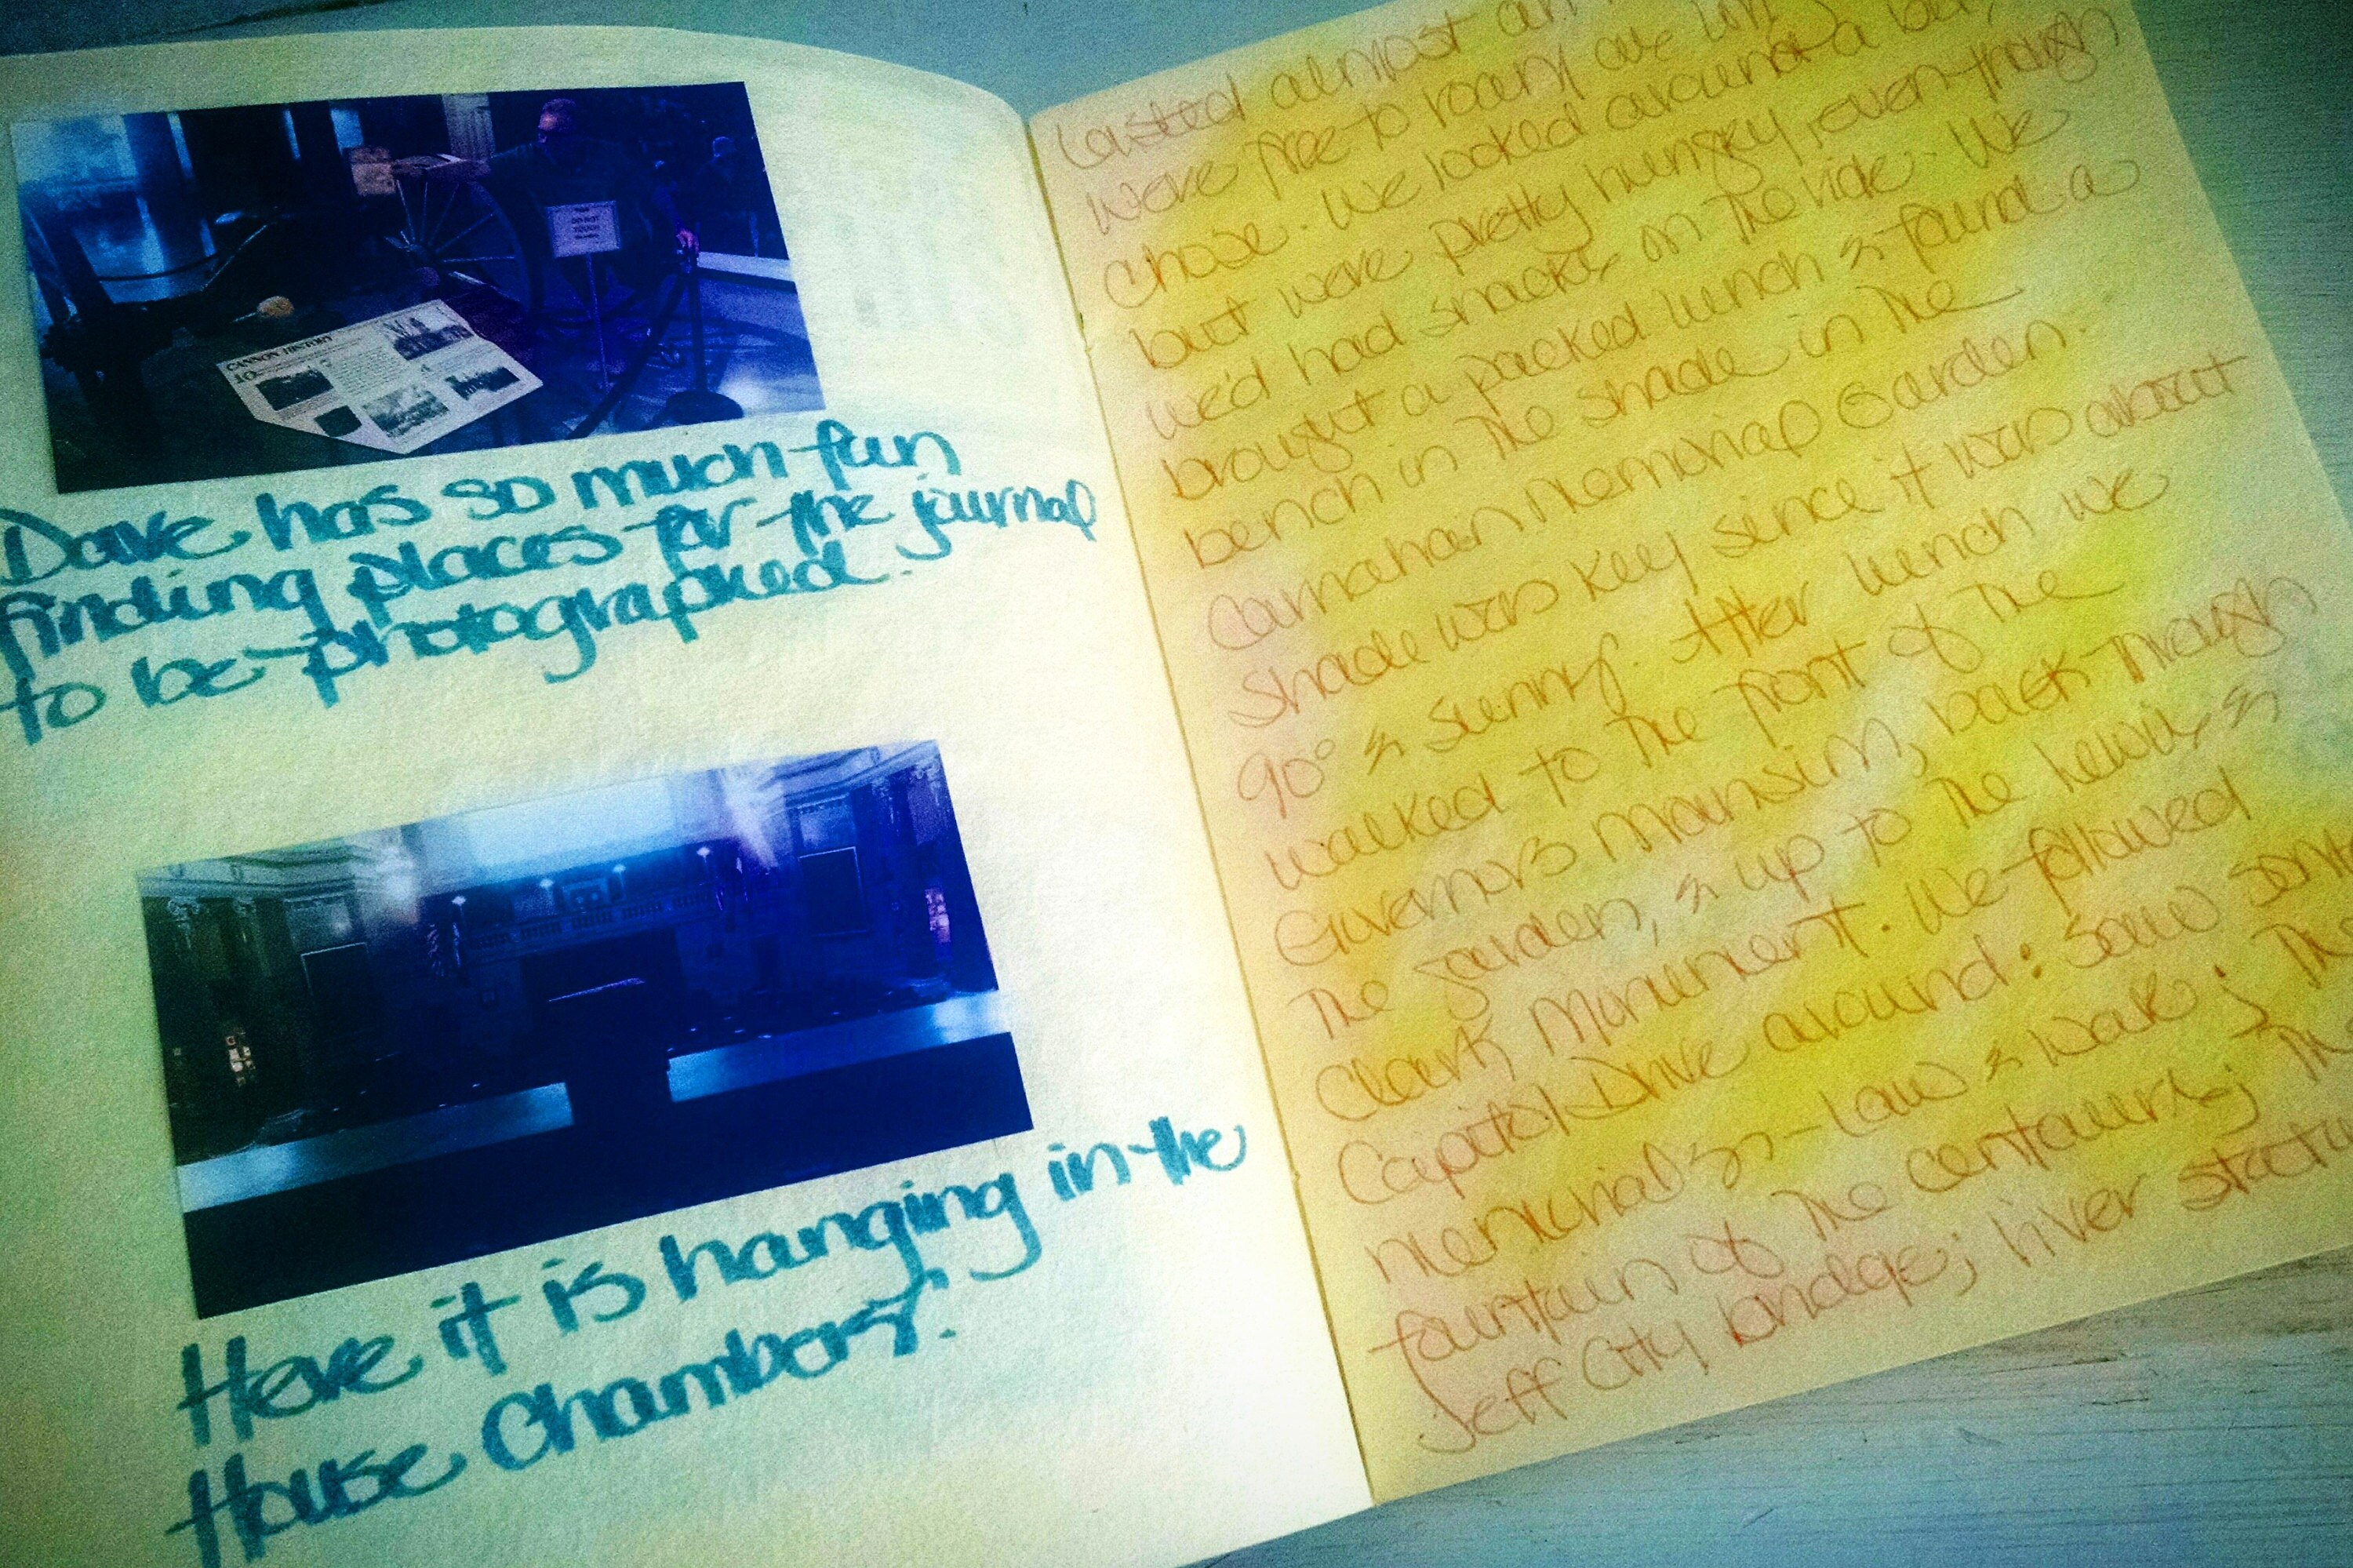 CANNON HISTORY
DO NOT
TOUCH
Dave has so much fun
finding places for the journal
to be photographed.
Here it is hanging in the
House Chambers!
Lasted almost an
were free to roam as we
chose. We looked around a bit,
but were pretty hungry, even though
we'd had snacks on the ride. We
brought a packed lunch & found a
bench in the shade in the
Carnahan Memorial Garden.
Shade was key since it was about
90° & sunny. After lunch we
walked to the front of the
Governor's Mansion, back through
the garden, & up to the Lewis &
Clark Monument. We followed
Capitol Drive around: saw some
memorials - Law & War; the
fountain of the centaurs; the
Jeff City bridge; river statue